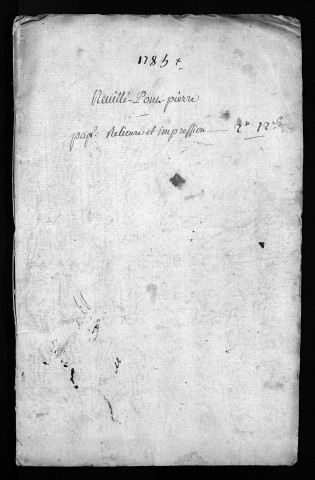 1785
Neuillé-Pont-pierre
pap.r Relieure et impression — 2# 12s